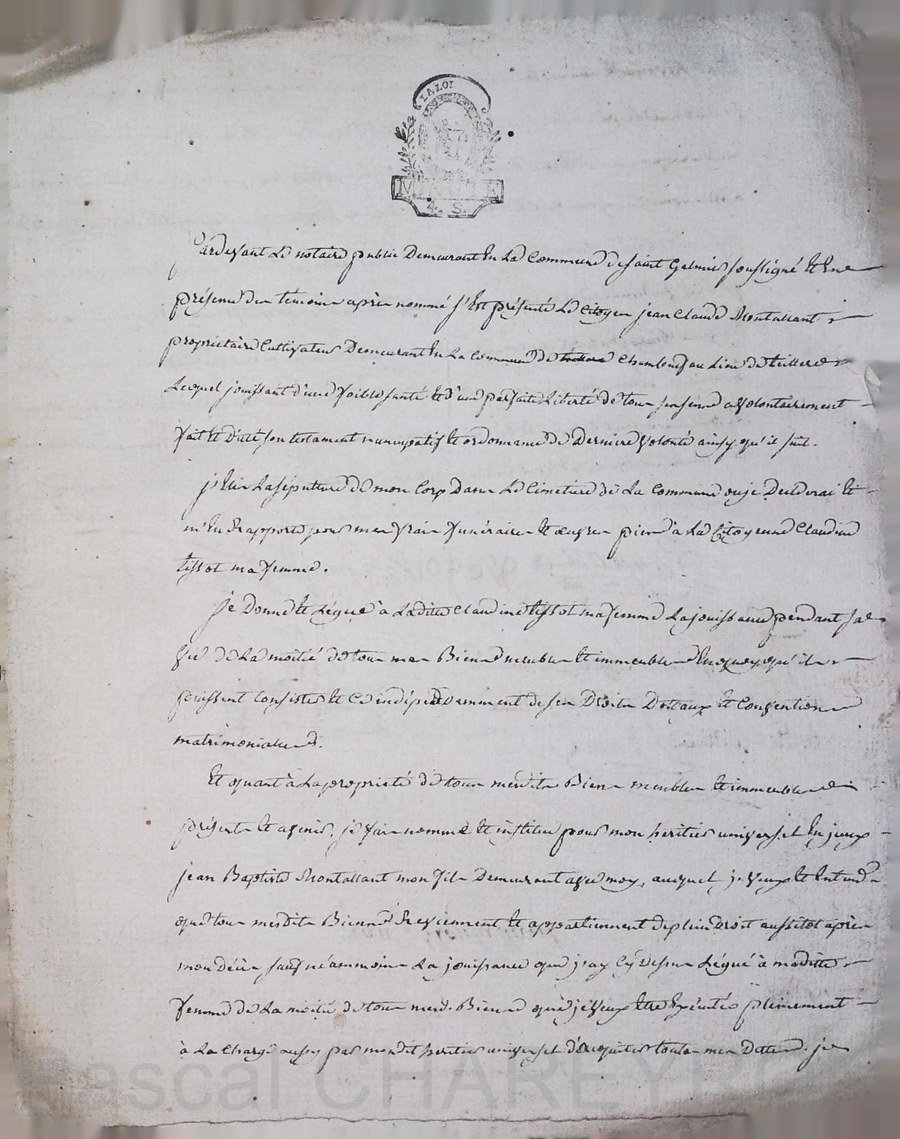 LA LOI
4. S.
Pardevant Le notaire public Demeurant En La Commune de Saint Galmier soussigné Et En
présence des temoins après nommé s'Est présenté Le Citoyen jean Claude Montallant
propriétaire Cultivateur Demeurant En La Commune de Chambeuf au Lieu de
Lequel jouissant d'une foible santé Et d'une parfaite Liberté de tous ses sens a volontairement
fait Et dicté son testament nuncupatif Et ordonnance de Derniere volonté ainsy qu'il suit.
j'Elis La sépulture de mon Corp Dans Le Cimetiere de La Commune ou je Decederai Et
m'En Rapporte pour mes frais funéraires Et œuvres pies à La Citoyenne Claudine
tissot ma femme.
je Donne Et Legue à Laditte Claudine tissot ma femme La jouissance pendant sa
vie de La moitié de tous mes Biens meubles Et immeubles En quoy qu'ils
puissent Consister Et Ce indépendamment de ses Droits Dotaux Et Conventions
matrimoniales.
Et quant à La propriété de tous mesdits Biens meubles Et immeubles
présents Et avenir, je fais nomme Et institue pour mon heritier universel
jean Baptiste Montallant mon fils Demeurant avec moy, auquel je veux Et Entend
que tous mesdits Biens Reviennent Et appartiennent de plein Droit aussitot après
mon décès, sauf néanmoins La jouissance que j'ay Cy Dessus Légué à maditte
femme de La moitié de tous mesd. Biens que je veux Etre Exécutée pleinement
à La Charge aussy par mondit heritier universel d'acquiter toutes mes Dettes. je
Pascal CHAREYRON